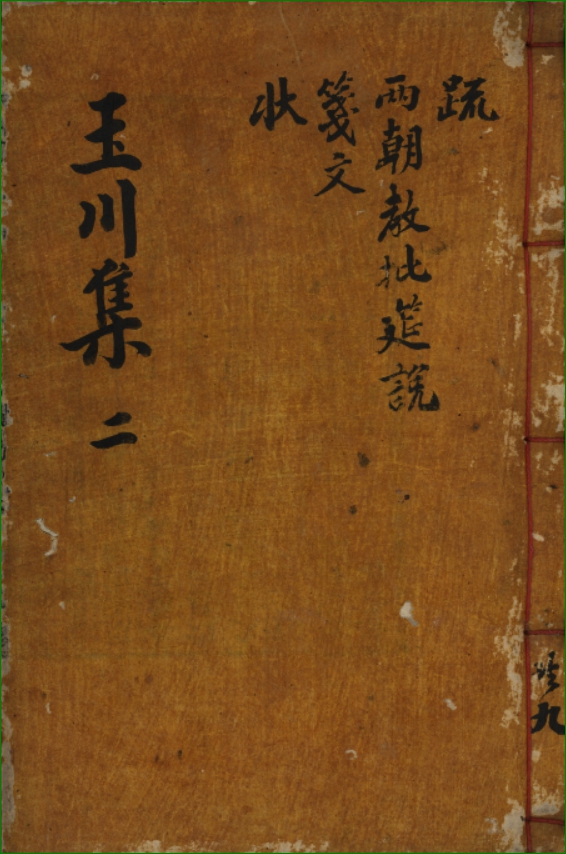 疏
兩朝教批筵說
箋文
狀
玉川集 二
共九